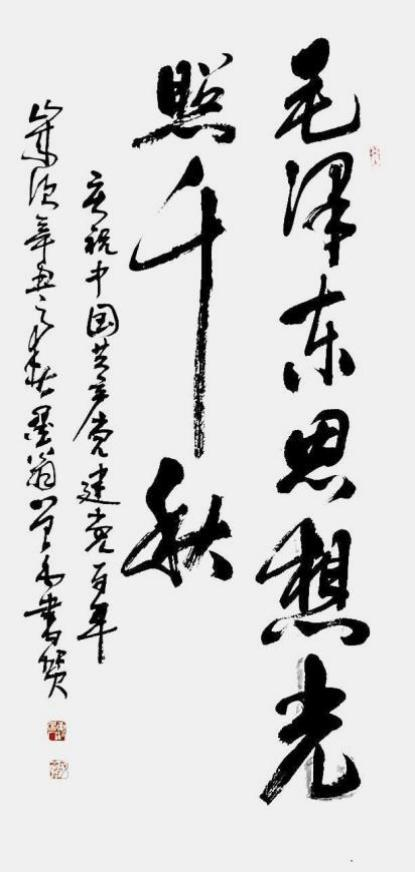 毛泽东思想光
照千秋
庆祝中国共产党建党百年
岁次辛丑之秋墨翁书贺